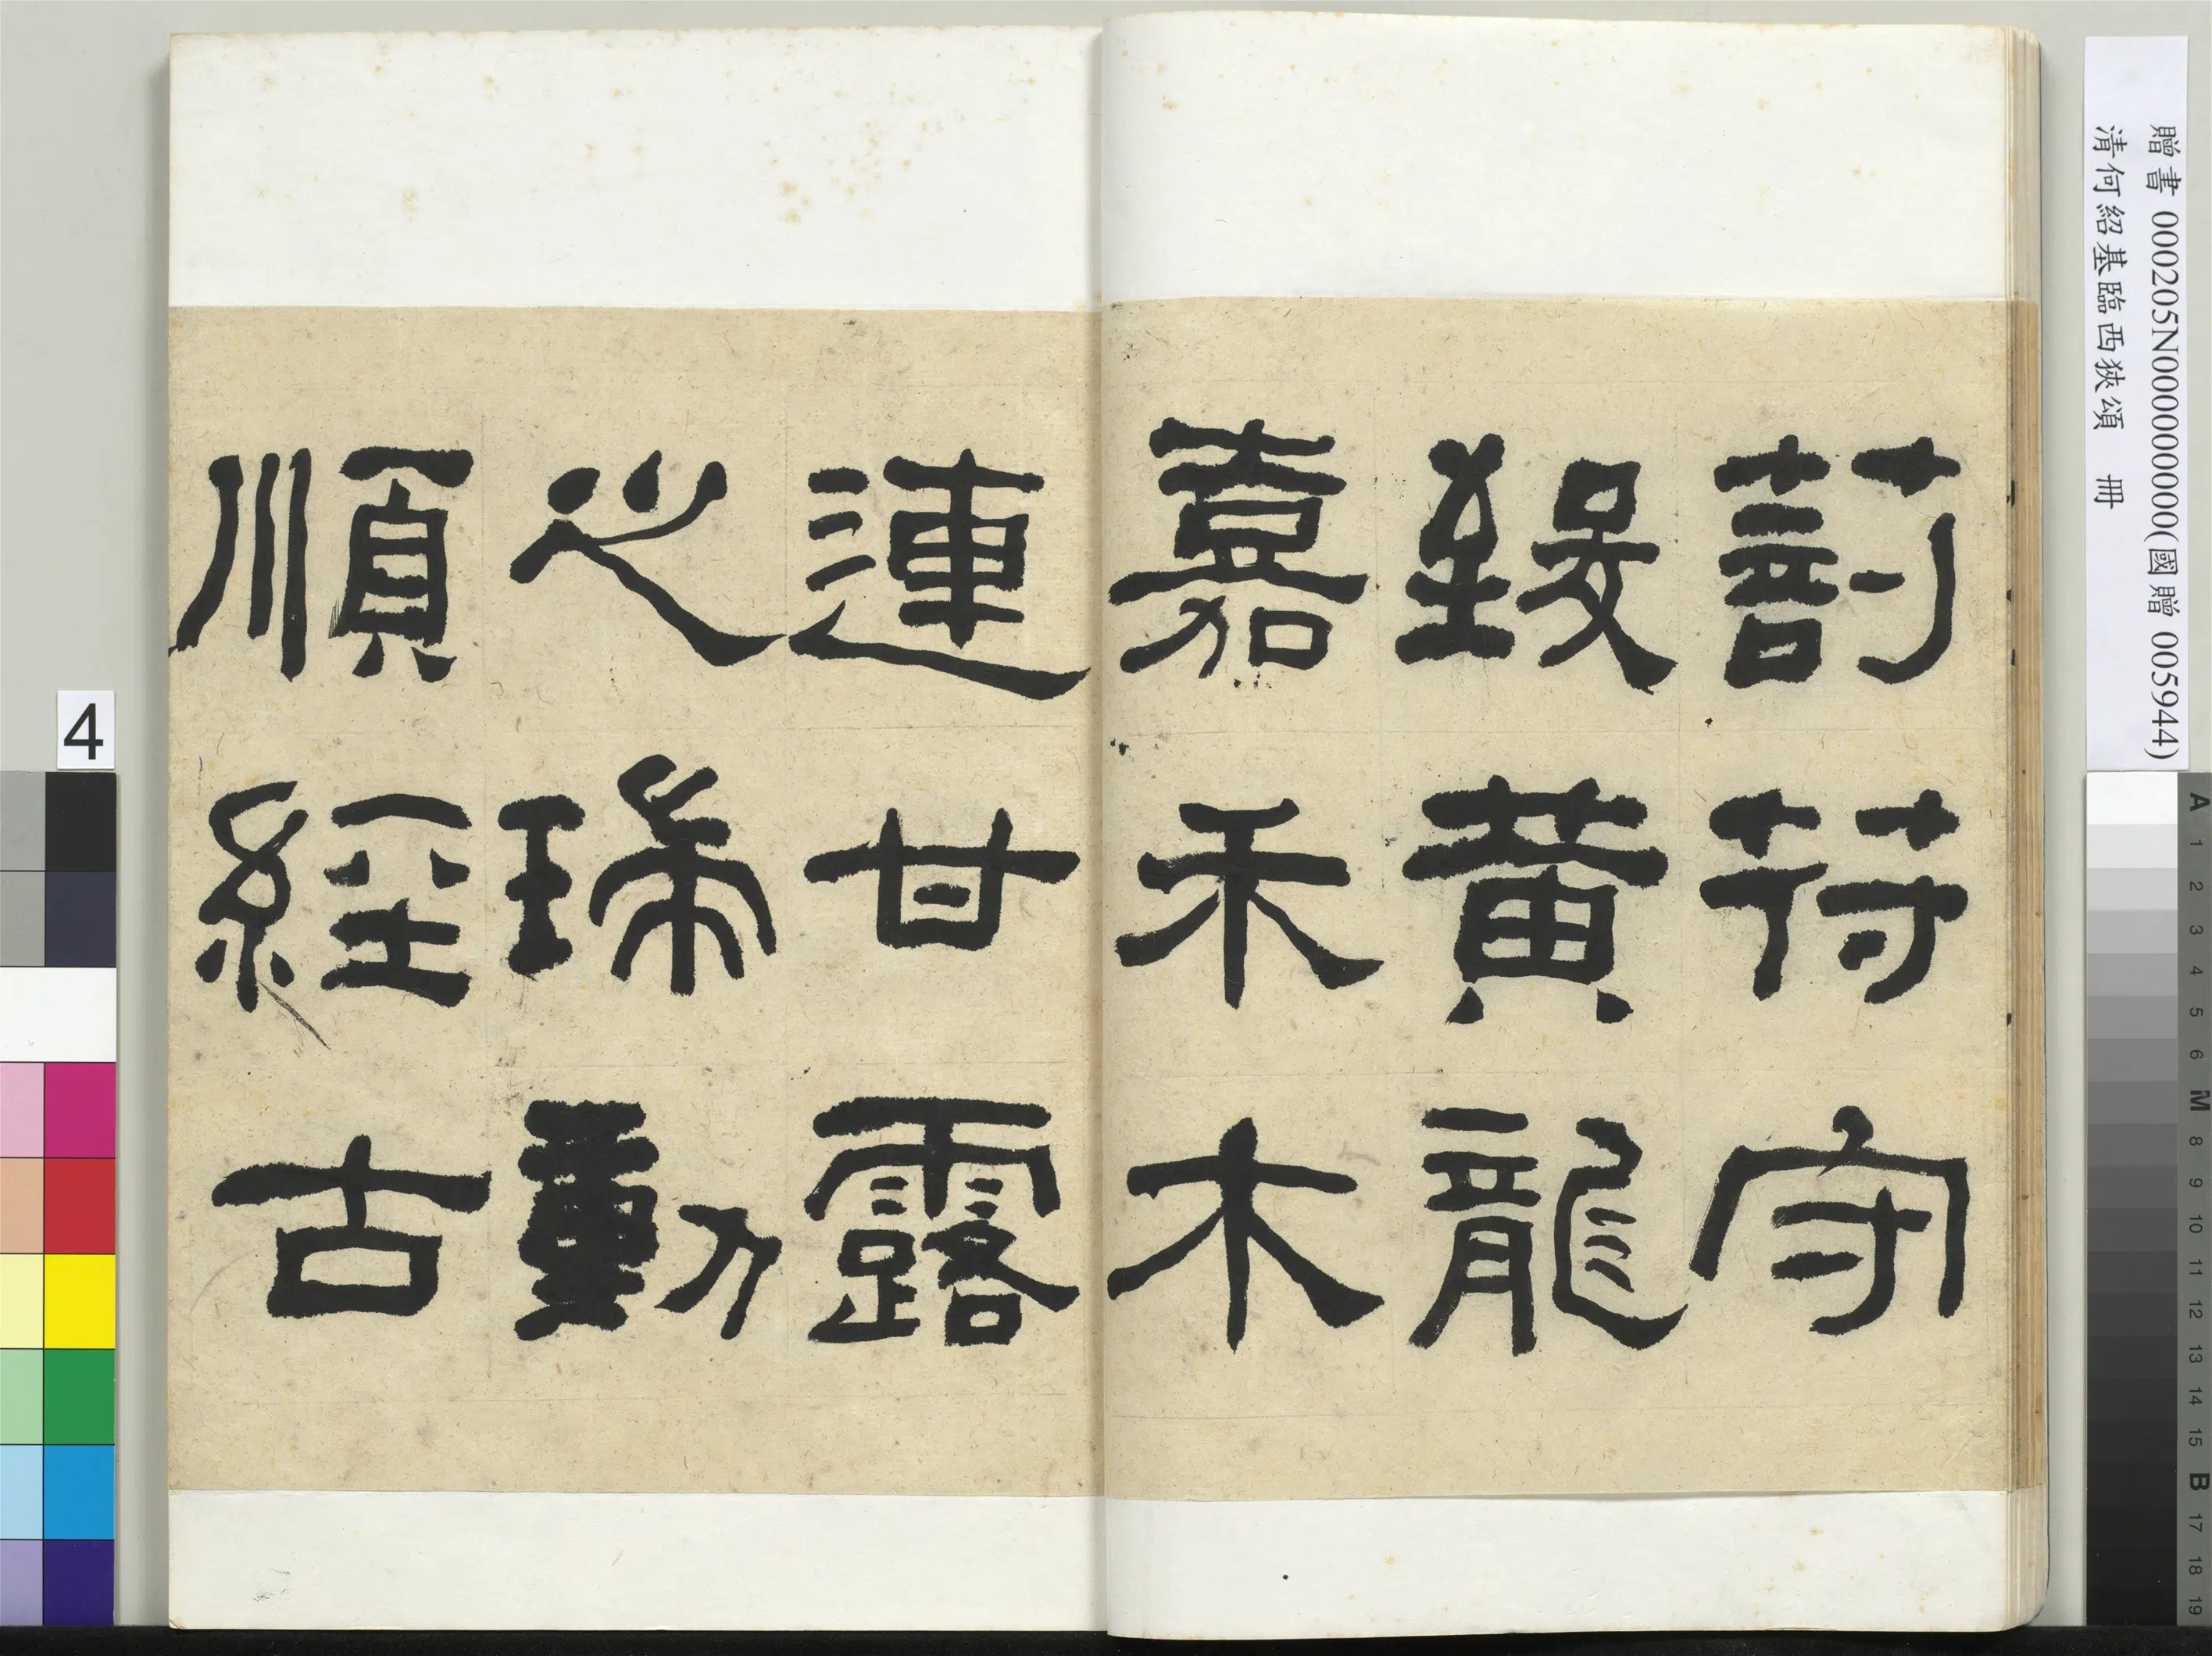 贈書 000205N000000000(國贈 005944)
清何紹基臨西狹頌 冊
剖符守
致黃龍
嘉禾木
連甘露
之瑞動
順經古
4
A 1 2 3 4 5 6 M 8 9 10 11 12 13 14 15 B 17 18 19